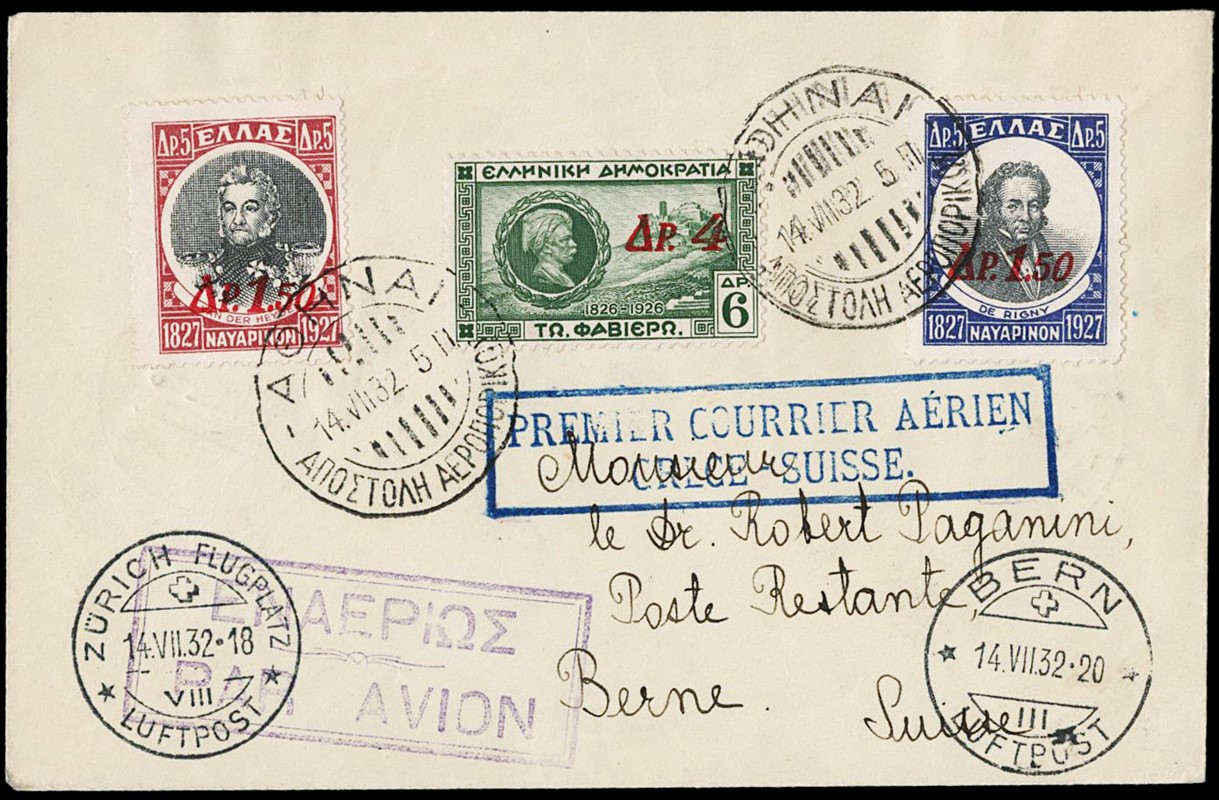 ΔΡ.5 ΕΛΛΑΣ ΔΡ.5
ΔΡ. 1.50
VAN DER HEYDEN
1827 ΝΑΥΑΡΙΝΟΝ 1927
ΕΛΛΗΝΙΚΗ ΔΗΜΟΚΡΑΤΙΑ
ΔΡ. 4
1826-1926
ΔΡ.
6
ΤΩ. ΦΑΒΙΕΡΩ.
ΔΡ.5 ΕΛΛΑΣ ΔΡ.5
ΔΡ. 1.50
DE RIGNY
1827 ΝΑΥΑΡΙΝΟΝ 1927
ΑΘΗΝΑΙ
14.VII.32. 5 Π
ΑΠΟΣΤΟΛΗ ΑΕΡΟΠΟΡΙΚΩ
- ΑΘΗΝΑΙ
14.VII.32. 5 Π
- ΑΠΟΣΤΟΛΗ ΑΕΡΟΠΟΡΙΚΩ
PREMIER COURRIER AÉRIEN
GRECE-SUISSE.
Monsieur
le Dr. Robert Paganini,
Poste Restante,
Berne.
Suisse
ZÜRICH FLUGPLATZ
14.VII.32·18
VIII
LUFTPOST
ΕΝΑΕΡΙΩΣ
PAR AVION
BERN
14.VII.32·20
III
LUFTPOST